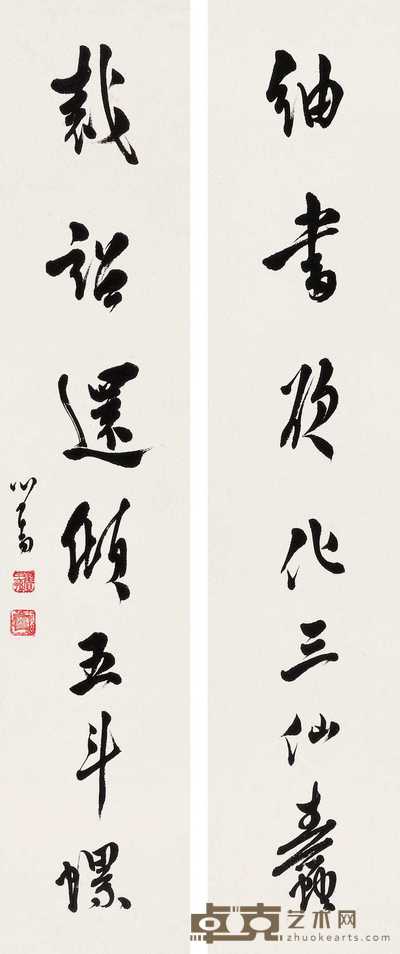 紬書欲化三仙蠹
裁詔還傾五斗螺
心畬
卓克艺术网
www.zhuokearts.com